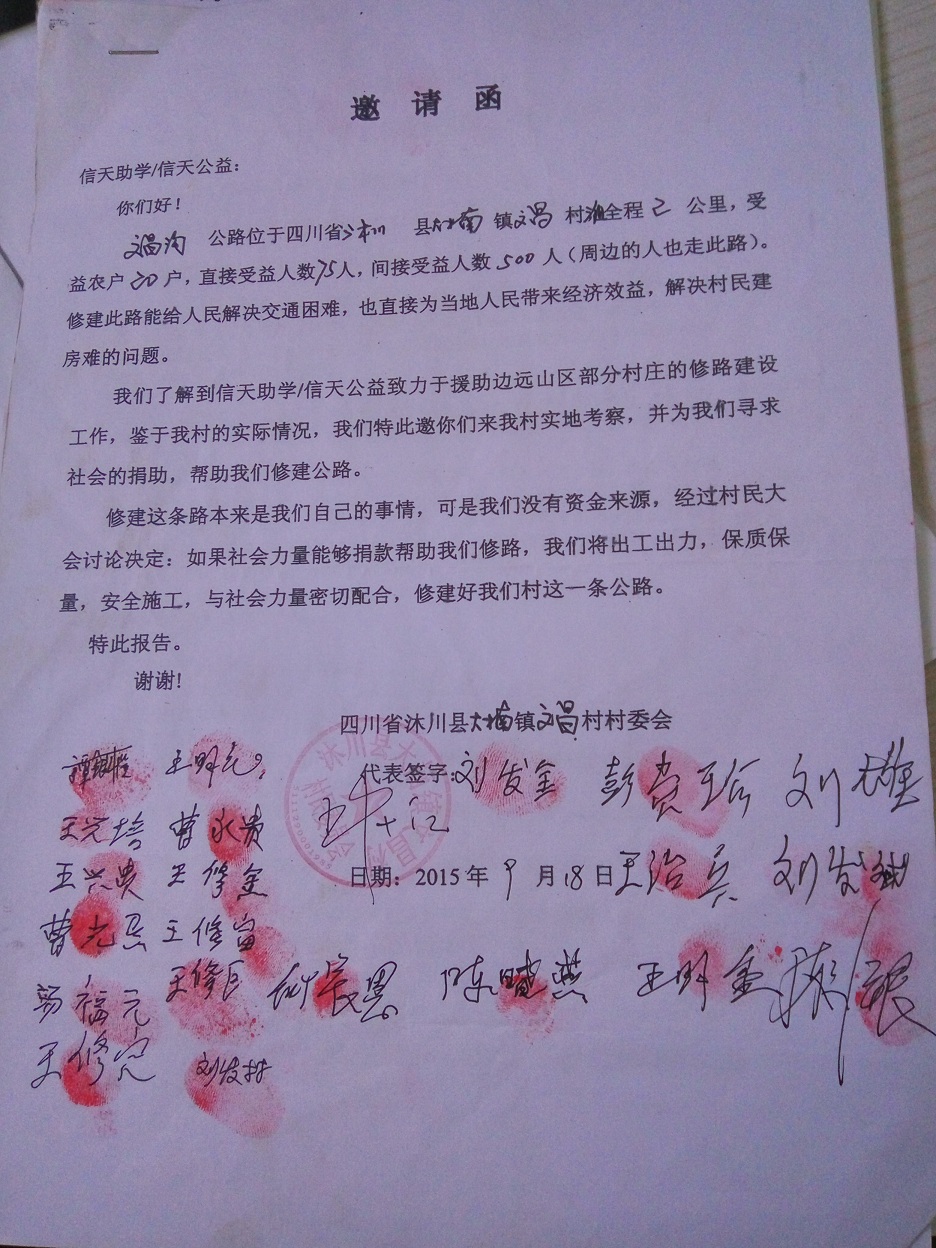 邀 请 函
信天助学/信天公益：
你们好！
文昌沟 公路位于四川省沐川 县大楠 镇文昌 村 全程2 公里，受
益农户20户，直接受益人数75人，间接受益人数500人（周边的人也走此路）。
修建此路能给人民解决交通困难，也直接为当地人民带来经济效益，解决村民建
房难的问题。
我们了解到信天助学/信天公益致力于援助边远山区部分村庄的修路建设
工作，鉴于我村的实际情况，我们特此邀你们来我村实地考察，并为我们寻求
社会的捐助，帮助我们修建公路。
修建这条路本来是我们自己的事情，可是我们没有资金来源，经过村民大
会讨论决定：如果社会力量能够捐款帮助我们修路，我们将出工出力，保质保
量，安全施工，与社会力量密切配合，修建好我们村这一条公路。
特此报告。
谢谢!
四川省沐川县大楠镇文昌村村委会
王明元 代表签字：刘发全 彭贵珍 刘雄
王兴培 曹永贵
王兴贵 王修金 日期：2015年9月18日 王治兵 刘发斌
曹光昌 王修富
杨福元 王修民 陈晓燕 王明金
王修完 刘发村